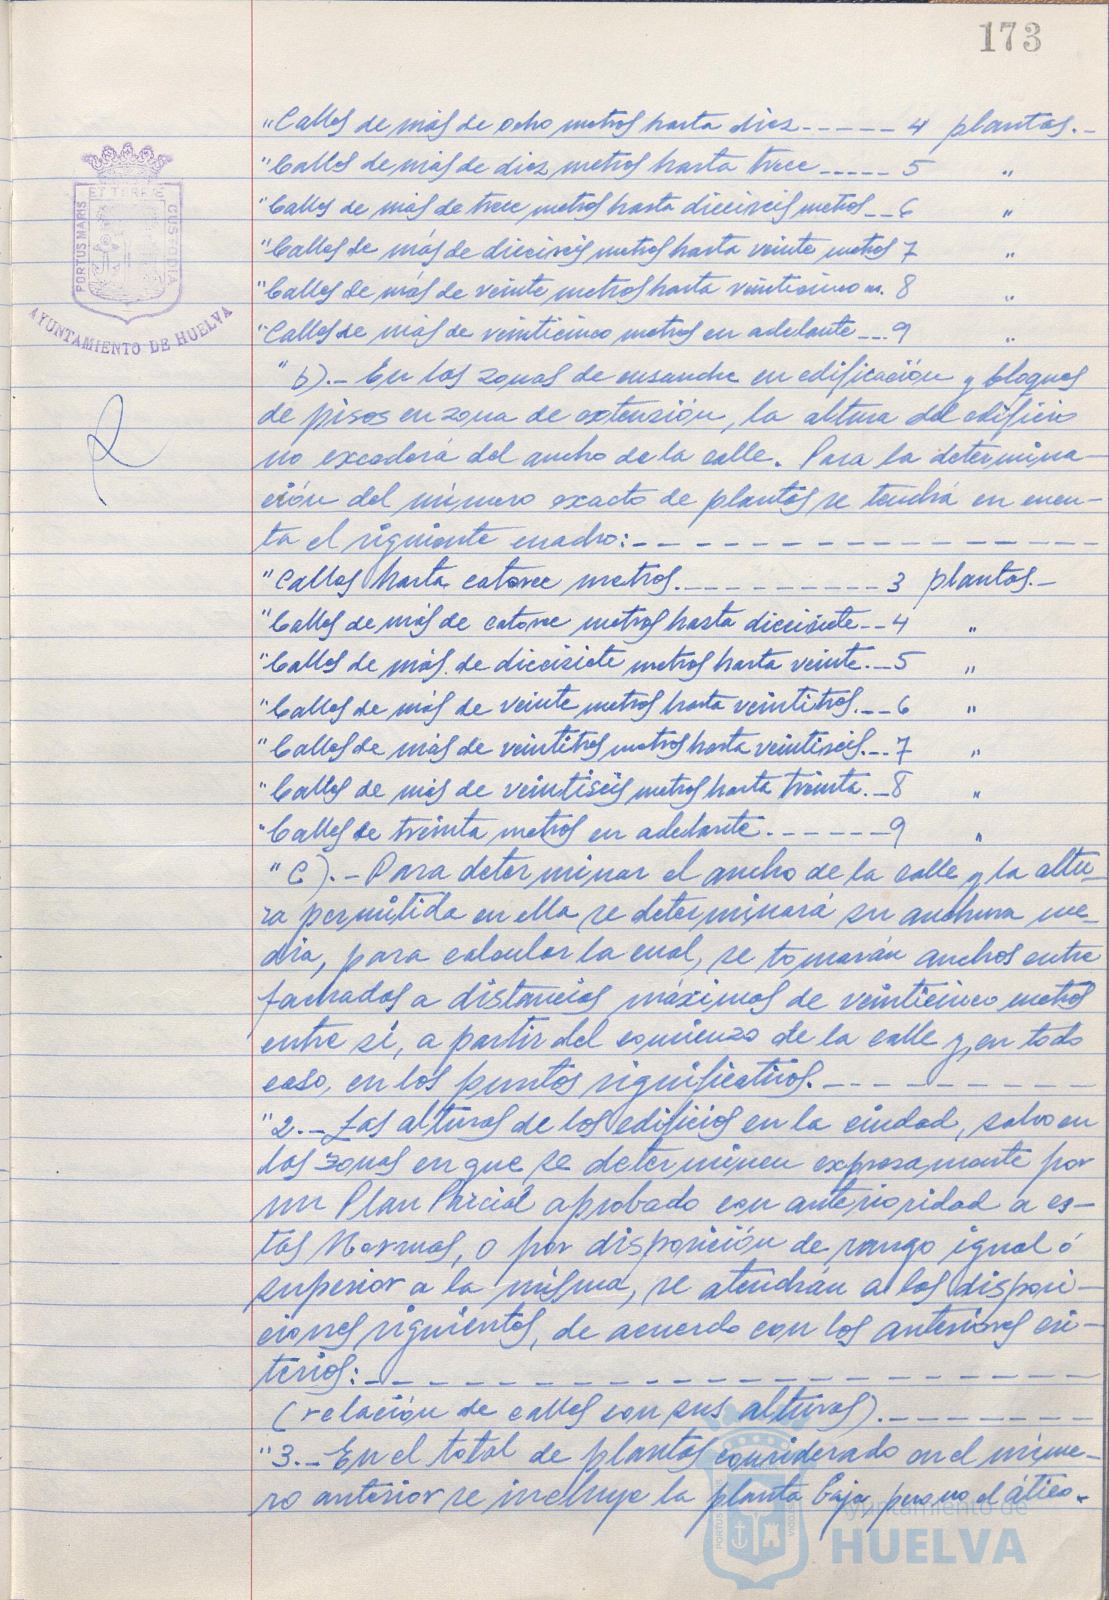 173
"Calles de más de ocho metros hasta diez - - - - - 4 plantas.-
"Calles de más de diez metros hasta trece ----- 5 "
"Calles de más de trece metros hasta dieciseis metros -- 6 "
"Calles de más de dieciseis metros hasta veinte metros 7 "
"Calles de más de veinte metros hasta veinticinco m. 8 "
"Calles de más de veinticinco metros en adelante --- 9 "
"b).- En las zonas de ensanche en edificación y bloques
de pisos en zona de extensión, la altura del edificio
no excederá del ancho de la calle. Para la determina-
ción del número exacto de plantas se tendrá en cuen-
ta el siguiente cuadro:- - - - - - - - - - - - - - -
"Calles hasta catorce metros. - - - - - - - - - 3 plantas.-
"Calles de más de catorce metros hasta diecisiete -- 4 "
"Calles de más de diecisiete metros hasta veinte.-- 5 "
"Calles de más de veinte metros hasta veintitres.-- 6 "
"Calles de más de veintitres metros hasta veintiseis.-- 7 "
"Calles de más de veintiseis metros hasta treinta.-- 8 "
"Calles de treinta metros en adelante.- - - - - - 9 "
"C).- Para determinar el ancho de la calle y la altu-
ra permitida en ella se determinará su anchura me-
dia, para calcular la cual, se tomarán anchos entre
fachadas a distancias máximas de veinticinco metros
entre sí, a partir del comienzo de la calle y, en todo
caso, en los puntos significativos.- - - - - - - - -
"2.- Las alturas de los edificios en la ciudad, salvo en
las zonas en que se determinen expresamente por
un Plan Parcial aprobado con anterioridad a es-
tas Normas, o por disposición de rango igual ó
superior a la misma, se atendrán a las disposi-
ciones siguientes, de acuerdo con los anteriores cri-
terios:- - - - - - - - - - - - - - - - - - - -
(relación de calles con sus alturas).- - - - - - -
"3.- En el total de plantas considerado en el núme-
ro anterior se incluye la planta baja, pero no el ático.-
ET TERRE
PORTUS MARIS
CUSTODIA
AYUNTAMIENTO DE HUELVA
Ayuntamiento de
HUELVA